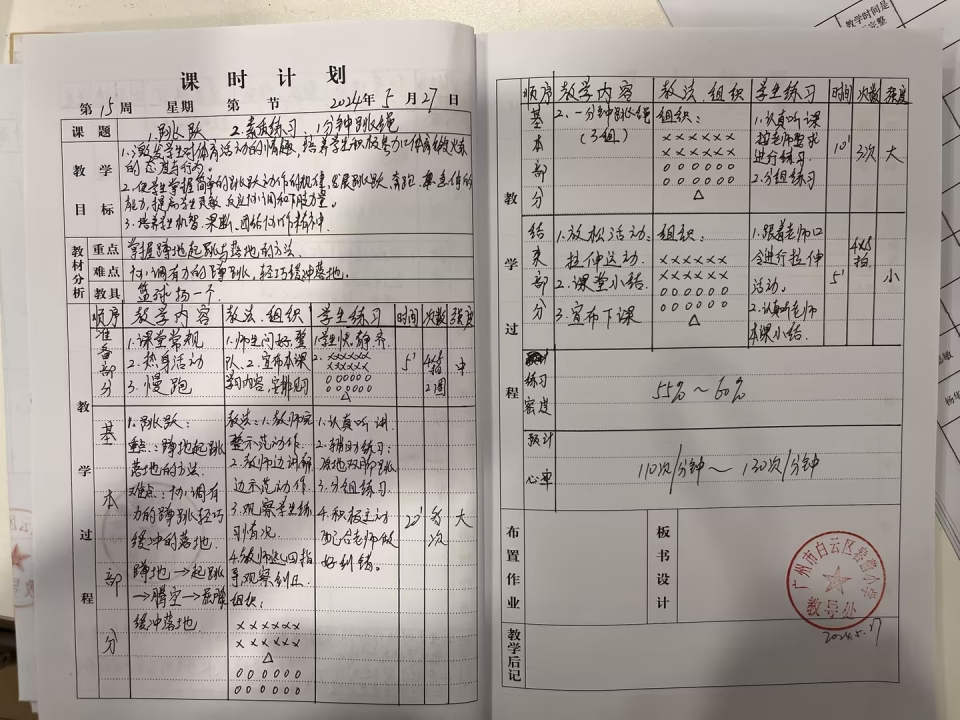 课时计划
第15周 星期 第 节 2024年5月27日
课题 1.跳跃 2.素质练习 1分钟跳绳
教学目标
1.激发学生对体育活动的情趣,培养学生积极
的态度与行为。
2.使学生掌握简单的跳跃动作的规律,发展跳跃、奔跑
能力,提高学生灵敏、反应、协调和下肢力量。
3.培养学生机智、果断、团结协作精神。
教材分析
重点 掌握蹲地起跳与落地的方法
难点 协调有力的蹲跳,轻巧缓冲落地。
教具 篮球场一个
教学过程
顺序 教学内容 教法、组织 学生练习 时间 次数 强度
准备部分
1.课堂常规
2.热身活动
3.慢跑
1.师生问好,整
队、2.宣布本课
学习内容,安排见习
1.学生快、静、齐
2. ××××××
××××××
○○○○○○
○○○○○○
△
5'
4×8拍
2圈
中
基本部分
1.跳跃:
重点:蹲地起跳
落地的方法
难点:协调有
力的蹲跳轻巧
缓冲的落地
蹲地→起跳
→腾空→屈膝
缓冲落地
教法:1.教师完
整示范动作
2.教师边讲解
边示范动作
3.观察学生练
习情况
4.教师巡回指
导观察纠正
组织:
××××××
××××××
△
○○○○○○
○○○○○○
1.认真听讲
2.辅助练习:
原地双脚跳
3.分组练习
4.积极主动
配合老师做
好纠错。
20'
次
大
顺序 教学内容 教法、组织 学生练习 时间 次数 强度
基本部分
2.一分钟跳绳
(3组)
组织:
××××××
××××××
○○○○○○
○○○○○○
△
1.认真听课
按老师要求
进行练习
2.分组练习
10'
3次
大
结束部分
1.放松活动:
拉伸运动
2.课堂小结
3.宣布下课
组织:
××××××
××××××
○○○○○○
○○○○○○
△
1.跟着老师口
令进行拉伸
活动。
2.认真听老师
本课小结.
5'
4×8拍
小
教学过程
练习密度 55%~60%
预计心率 110次/分钟~130次/分钟
布置作业
板书设计
教学后记
广州市白云区
小学
教导处
2024.5.27
教学时间是
完整
敏
杨华